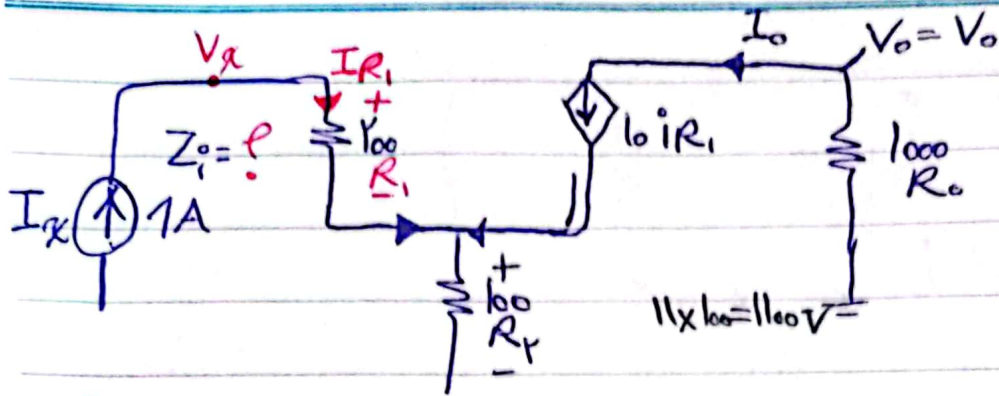 Vx
IR₁
Io
Vo = Vo
+
Zi = ?
۲00
R₁
-
10 iR₁
1000
Ro
Ix
1A
+
100
R۲
-
11x100=1100V